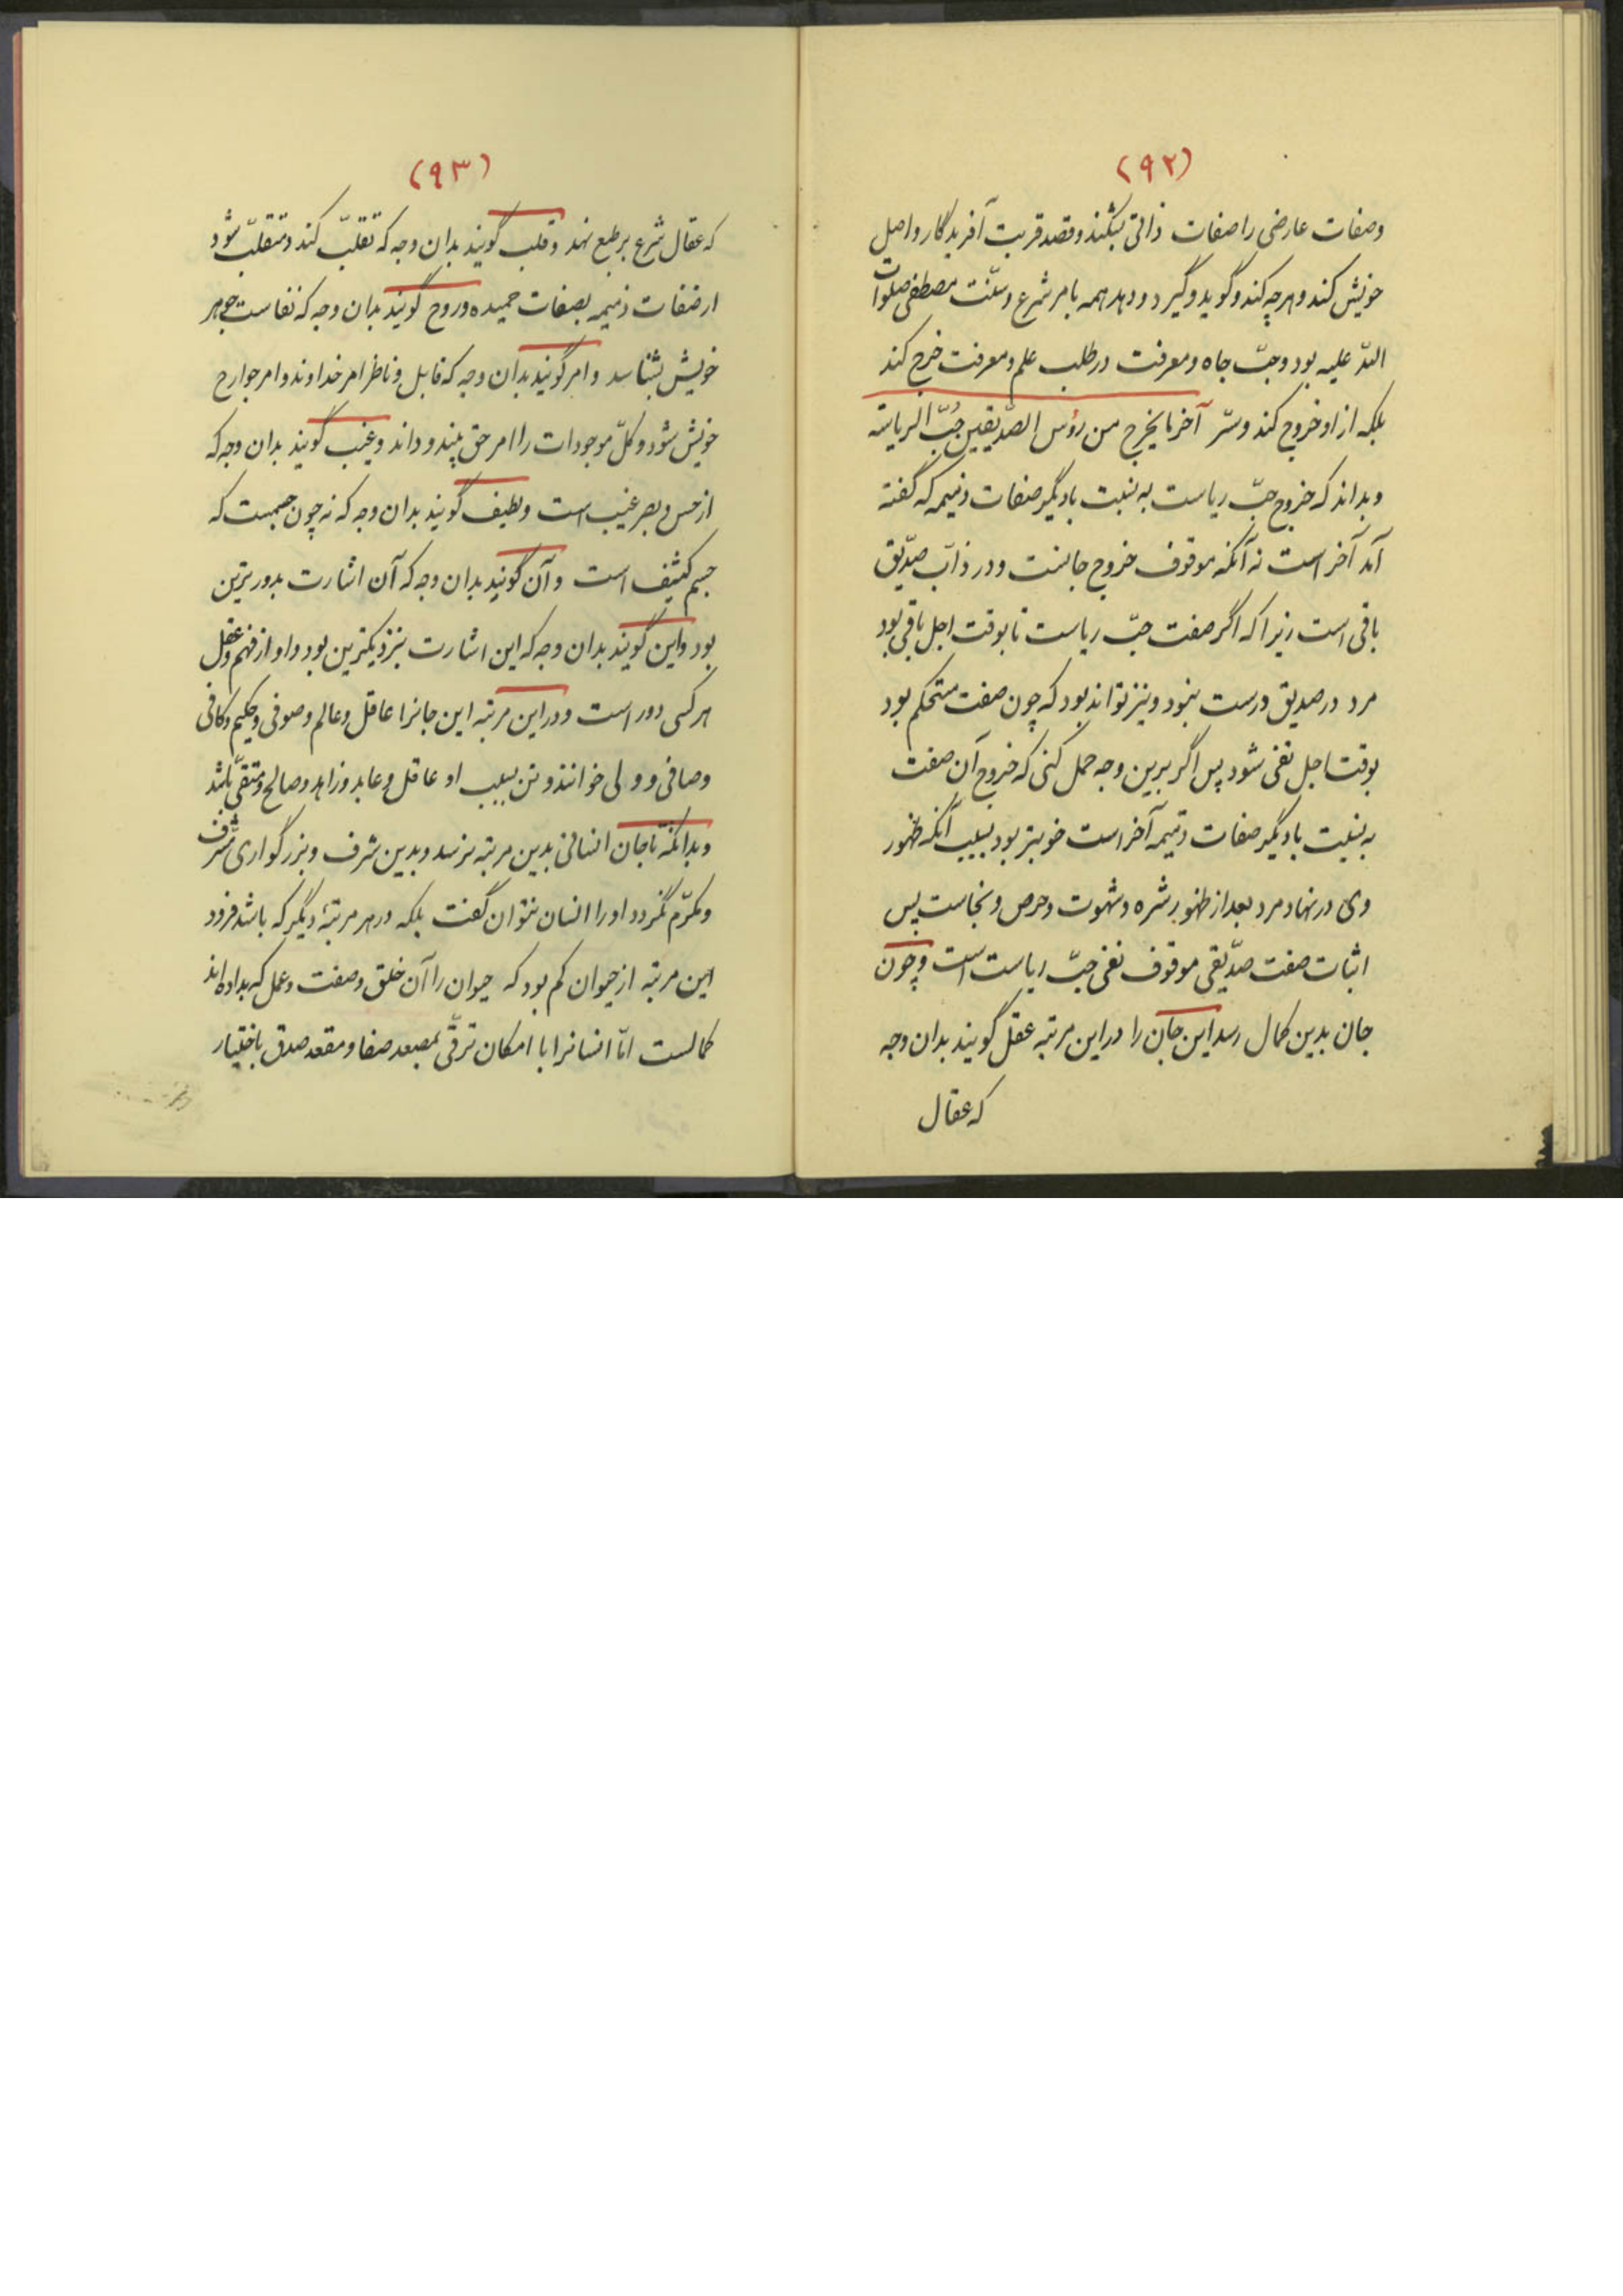 (۹۲)
وصفات عارضی را صفات ذاتی بشکند وقصد قربت آفریدگار واصل
خویش کند وهرچه کند وگوید وگیرد ودهد همه بامر شرع وسنّت مصطفی صلوات
اللّه علیه بود وحبّ جاه ومعرفت در طلب علم ومعرفت خرج کند
بلکه از او خروج کند وسرّ آخر ما یخرج من رؤس الصدّیقین حُبّ الریاسة
وبداند که خروج حبّ ریاست به نسبت با دیگر صفات ذمیمه که گفته
آمد آخر است نه آنکه موقوف خروج جانست ودر ذات صدّیق
باقی است زیرا که اگر صفت حبّ ریاست تا بوقت اجل باقی بود
مرد در صدیق درست نبود ونیز نتواند بود که چون صفت مستحکم بود
بوقت اجل نفی شود پس اگر برین وجه حمل کنی که خروج آن صفت
به نسبت با دیگر صفات ذمیمه آخر است خوبتر بود بسبب آنکه ظهور
وی در نهاد مرد بعد از ظهور شره وشهوت وحرص ونجاست پس
اثبات صفت صدّیقی موقوف نفی حبّ ریاست است وچون
جان بدین کمال رسد این جان را در این مرتبه عقل گویند بدان وجه
که عقال
(۹۳)
که عقال شرع بر طبع نهد وقلب گویند بدان وجه که تقلّب کند ومتقلّب شود
از صفات ذمیمه بصفات حمیده وروح گویند بدان وجه که نفاست جوهر
خویش بشناسد وامر گویند بدان وجه که قابل وناظر امر خداوند وامر جوارح
خویش شود وکلّ موجودات را امر حق بیند وداند وغیب گویند بدان وجه که
از حس وبصر غیب است ولطیف گویند بدان وجه که نه چون جسمست که
جسم کثیف است وآن گویند بدان وجه که آن اشارت بدورترین
بود واین گویند بدان وجه که این اشارت بنزدیکترین بود واو از فهم وعقل
هر کسی دور است ودر این مرتبه این جانرا عاقل وعالم وصوفی وحکیم وکافی
وصافی وولی خوانند وتن بسبب او عاقل وعابد وزاهد وصالح ومتقی باشد
وبدانکه تا جان انسانی بدین مرتبه نرسد وبدین شرف وبزرگواری مشرّف
ومکرّم نگردد او را انسان نتوان گفت بلکه در هر مرتبهٔ دیگر که باشد فرود
این مرتبه از حیوان کم بود که حیوان را آن خلق وصفت وعمل که بداده اند
کمالست امّا انسانرا با امکان ترقّی بمصعد صفا ومقعد صدق باختیار